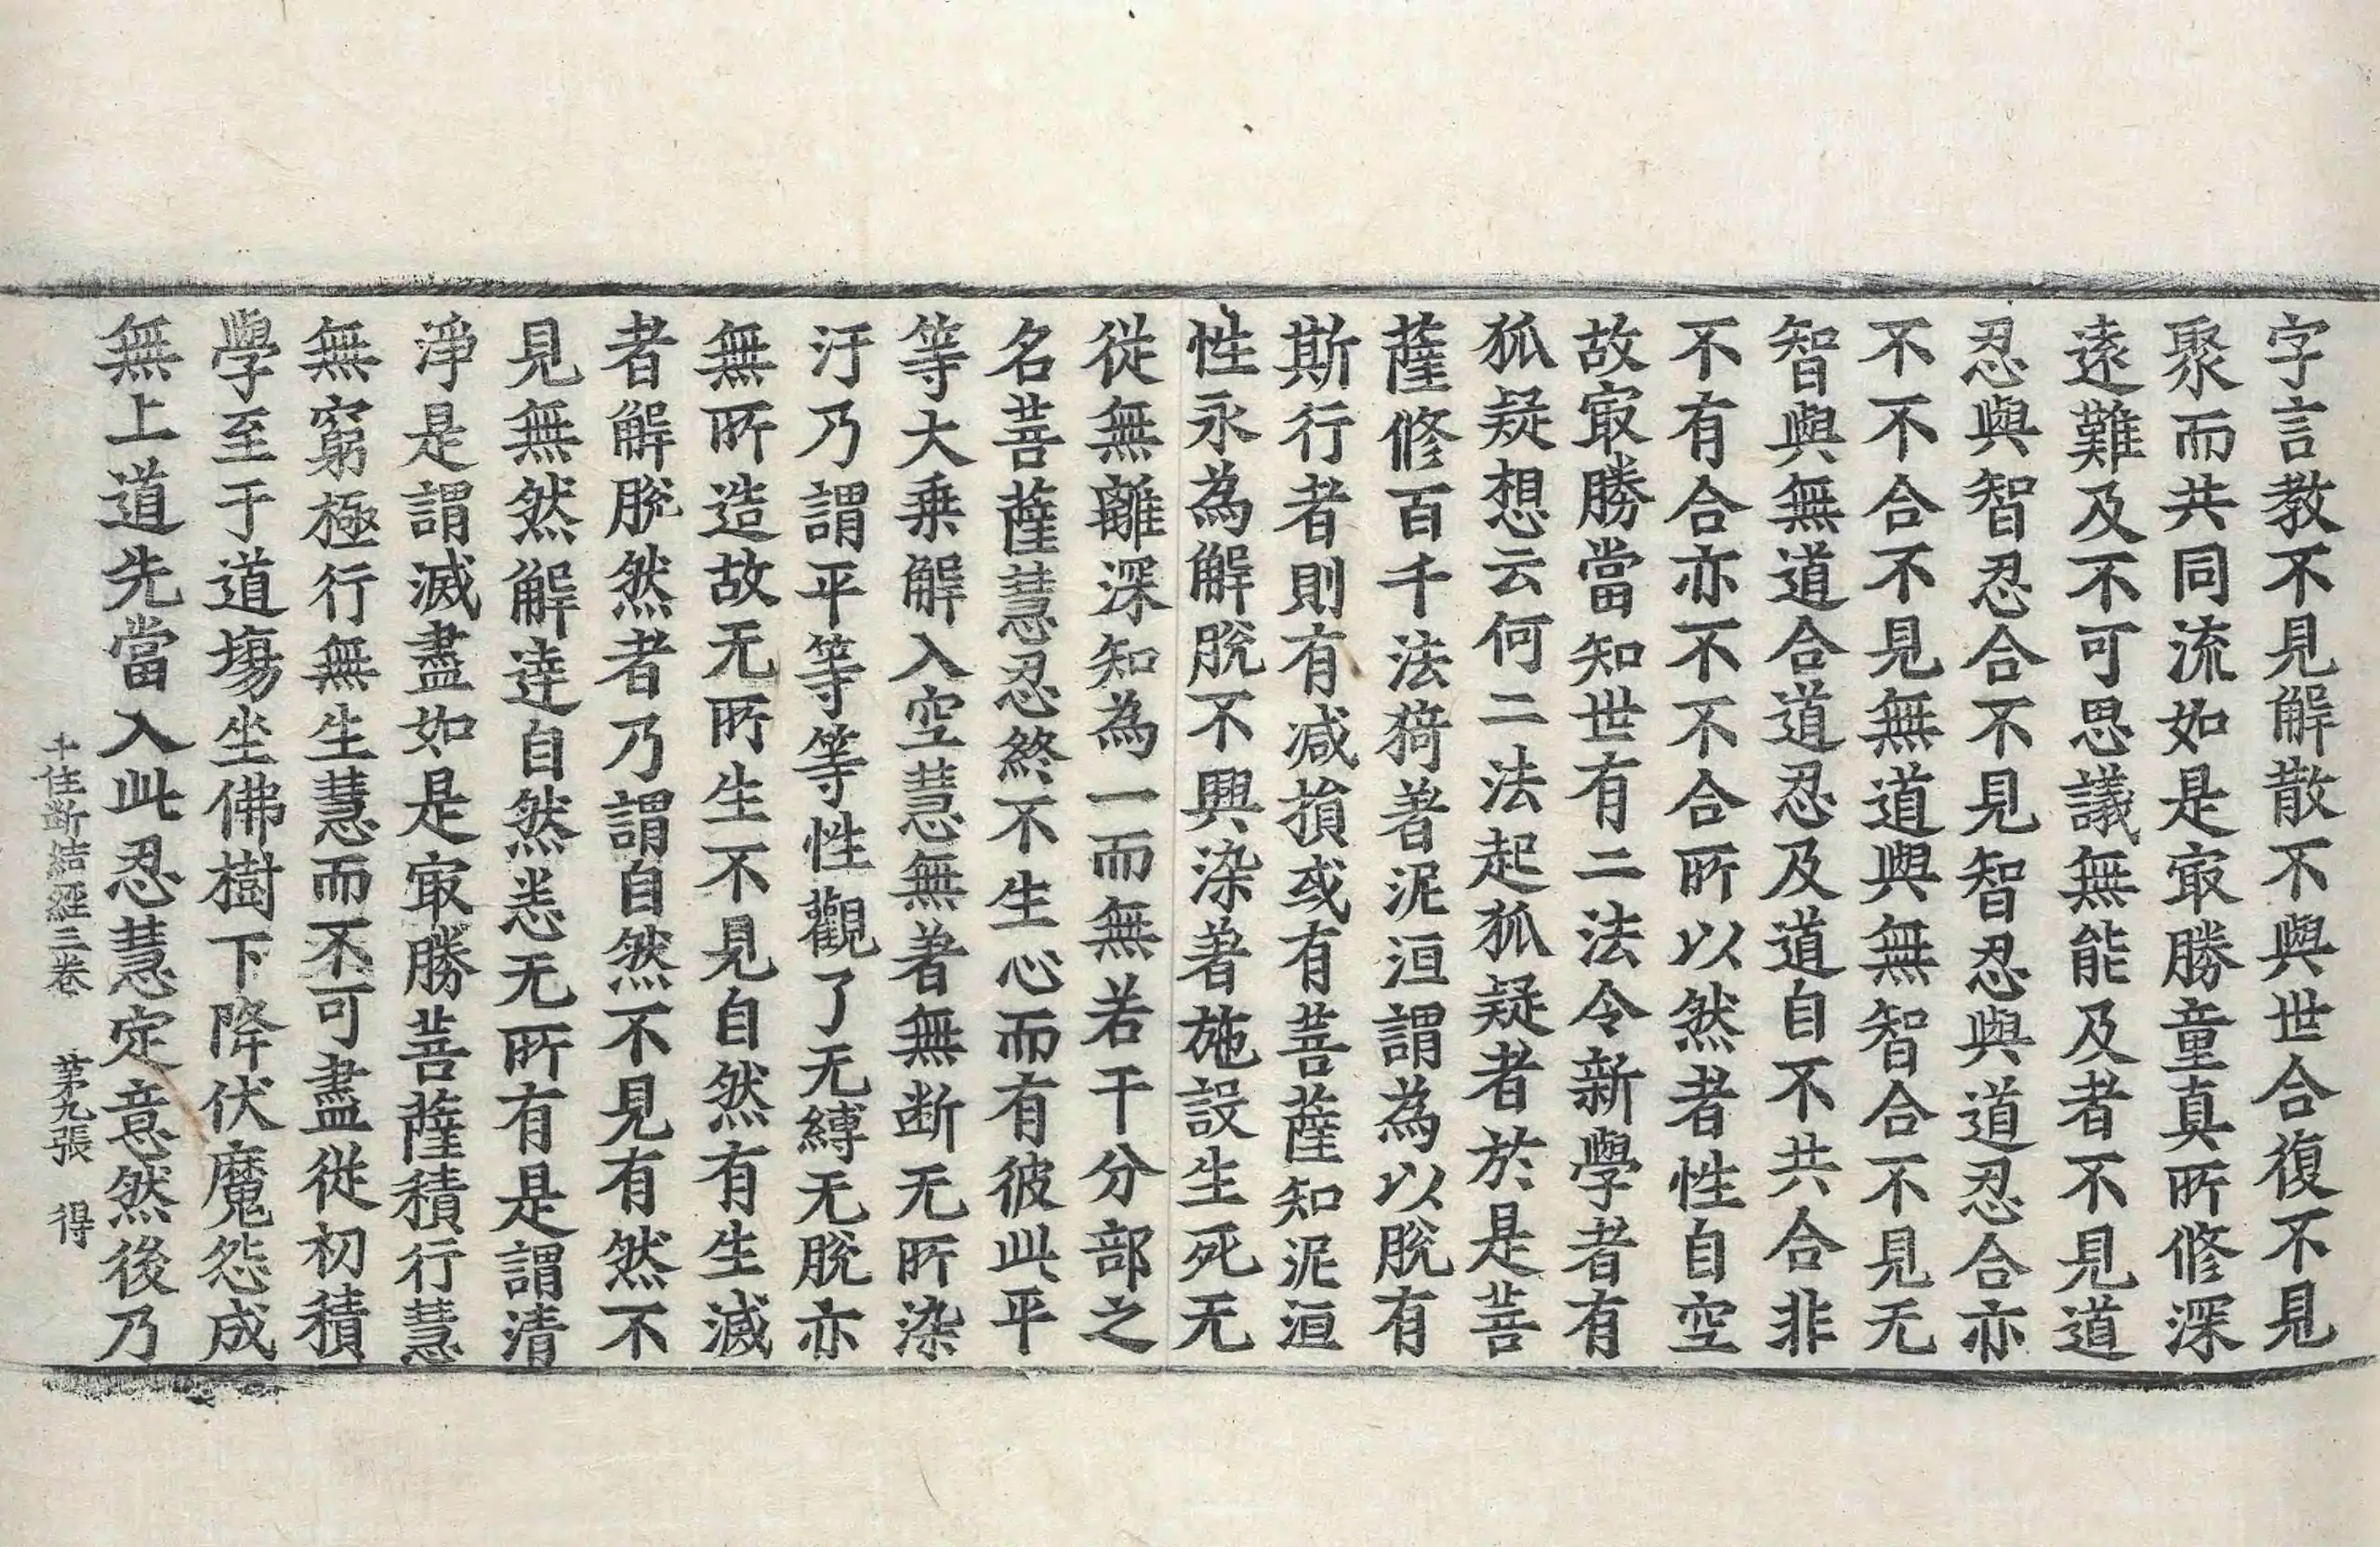 字言教不見解散不與世合復不見
聚而共同流如是㝡勝童真所修深
遠難及不可思議無能及者不見道
忍與智忍合不見智忍與道忍合亦
不不合不見無道與無智合不見无
智與無道合道忍及道自不共合非
不有合亦不不合所以然者性自空
故㝡勝當知世有二法令新學者有
狐疑想云何二法起狐疑者於是菩
薩修百千法猗著泥洹謂為以脫有
斯行者則有减損或有菩薩知泥洹
性永為解脫不興染著施設生死无
從無離深知為一而無若干分部之
名菩薩慧忍終不生心而有彼此平
等大乗解入空慧無著無断无所染
汙乃謂平等等性觀了无縛无脫亦
無所造故无所生不見自然有生滅
者解脫然者乃謂自然不見有然不
見無然解達自然恙无所有是謂清
淨是謂滅盡如是㝡勝菩薩積行慧
無窮極行無生慧而不可盡從初積
學至于道場坐佛樹下降伏魔怨成
無上道先當入此忍慧定意然後乃
十住断結經三卷 苐九張 得